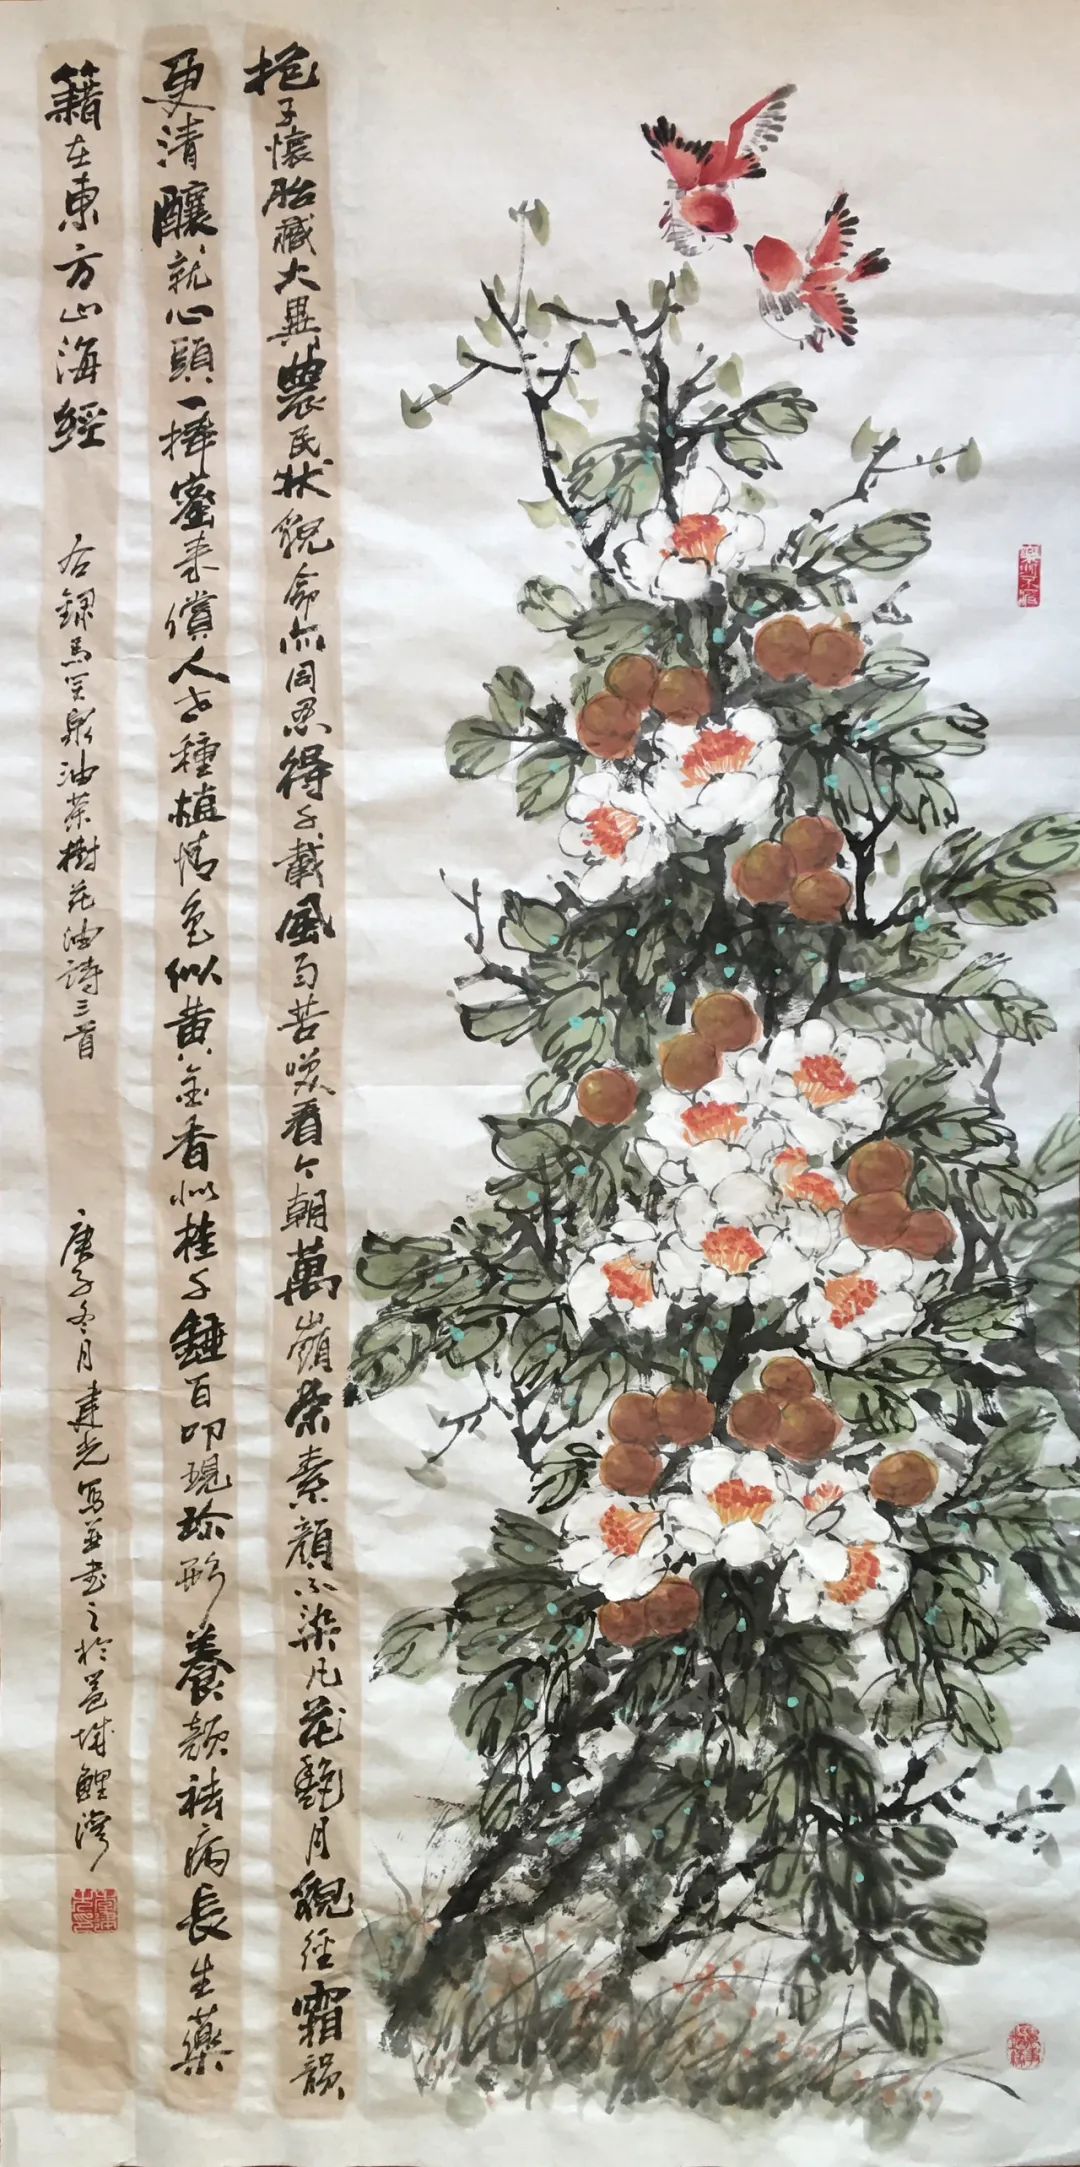 抱子懷胎藏大異農民狀貌命亦同忍得千載風雨苦喚看今朝萬嶺榮素顏不染凡花艷月貌經霜韻
更清釀就心頭一捧蜜來償人世種植情色似黃金香似桂千錘百叩現珍形養顏祛病長生藥
籍在東方山海經
右錄馬笑泉油茶樹花油詩三首
庚子冬月建光寫並書之於邑城鯉灣